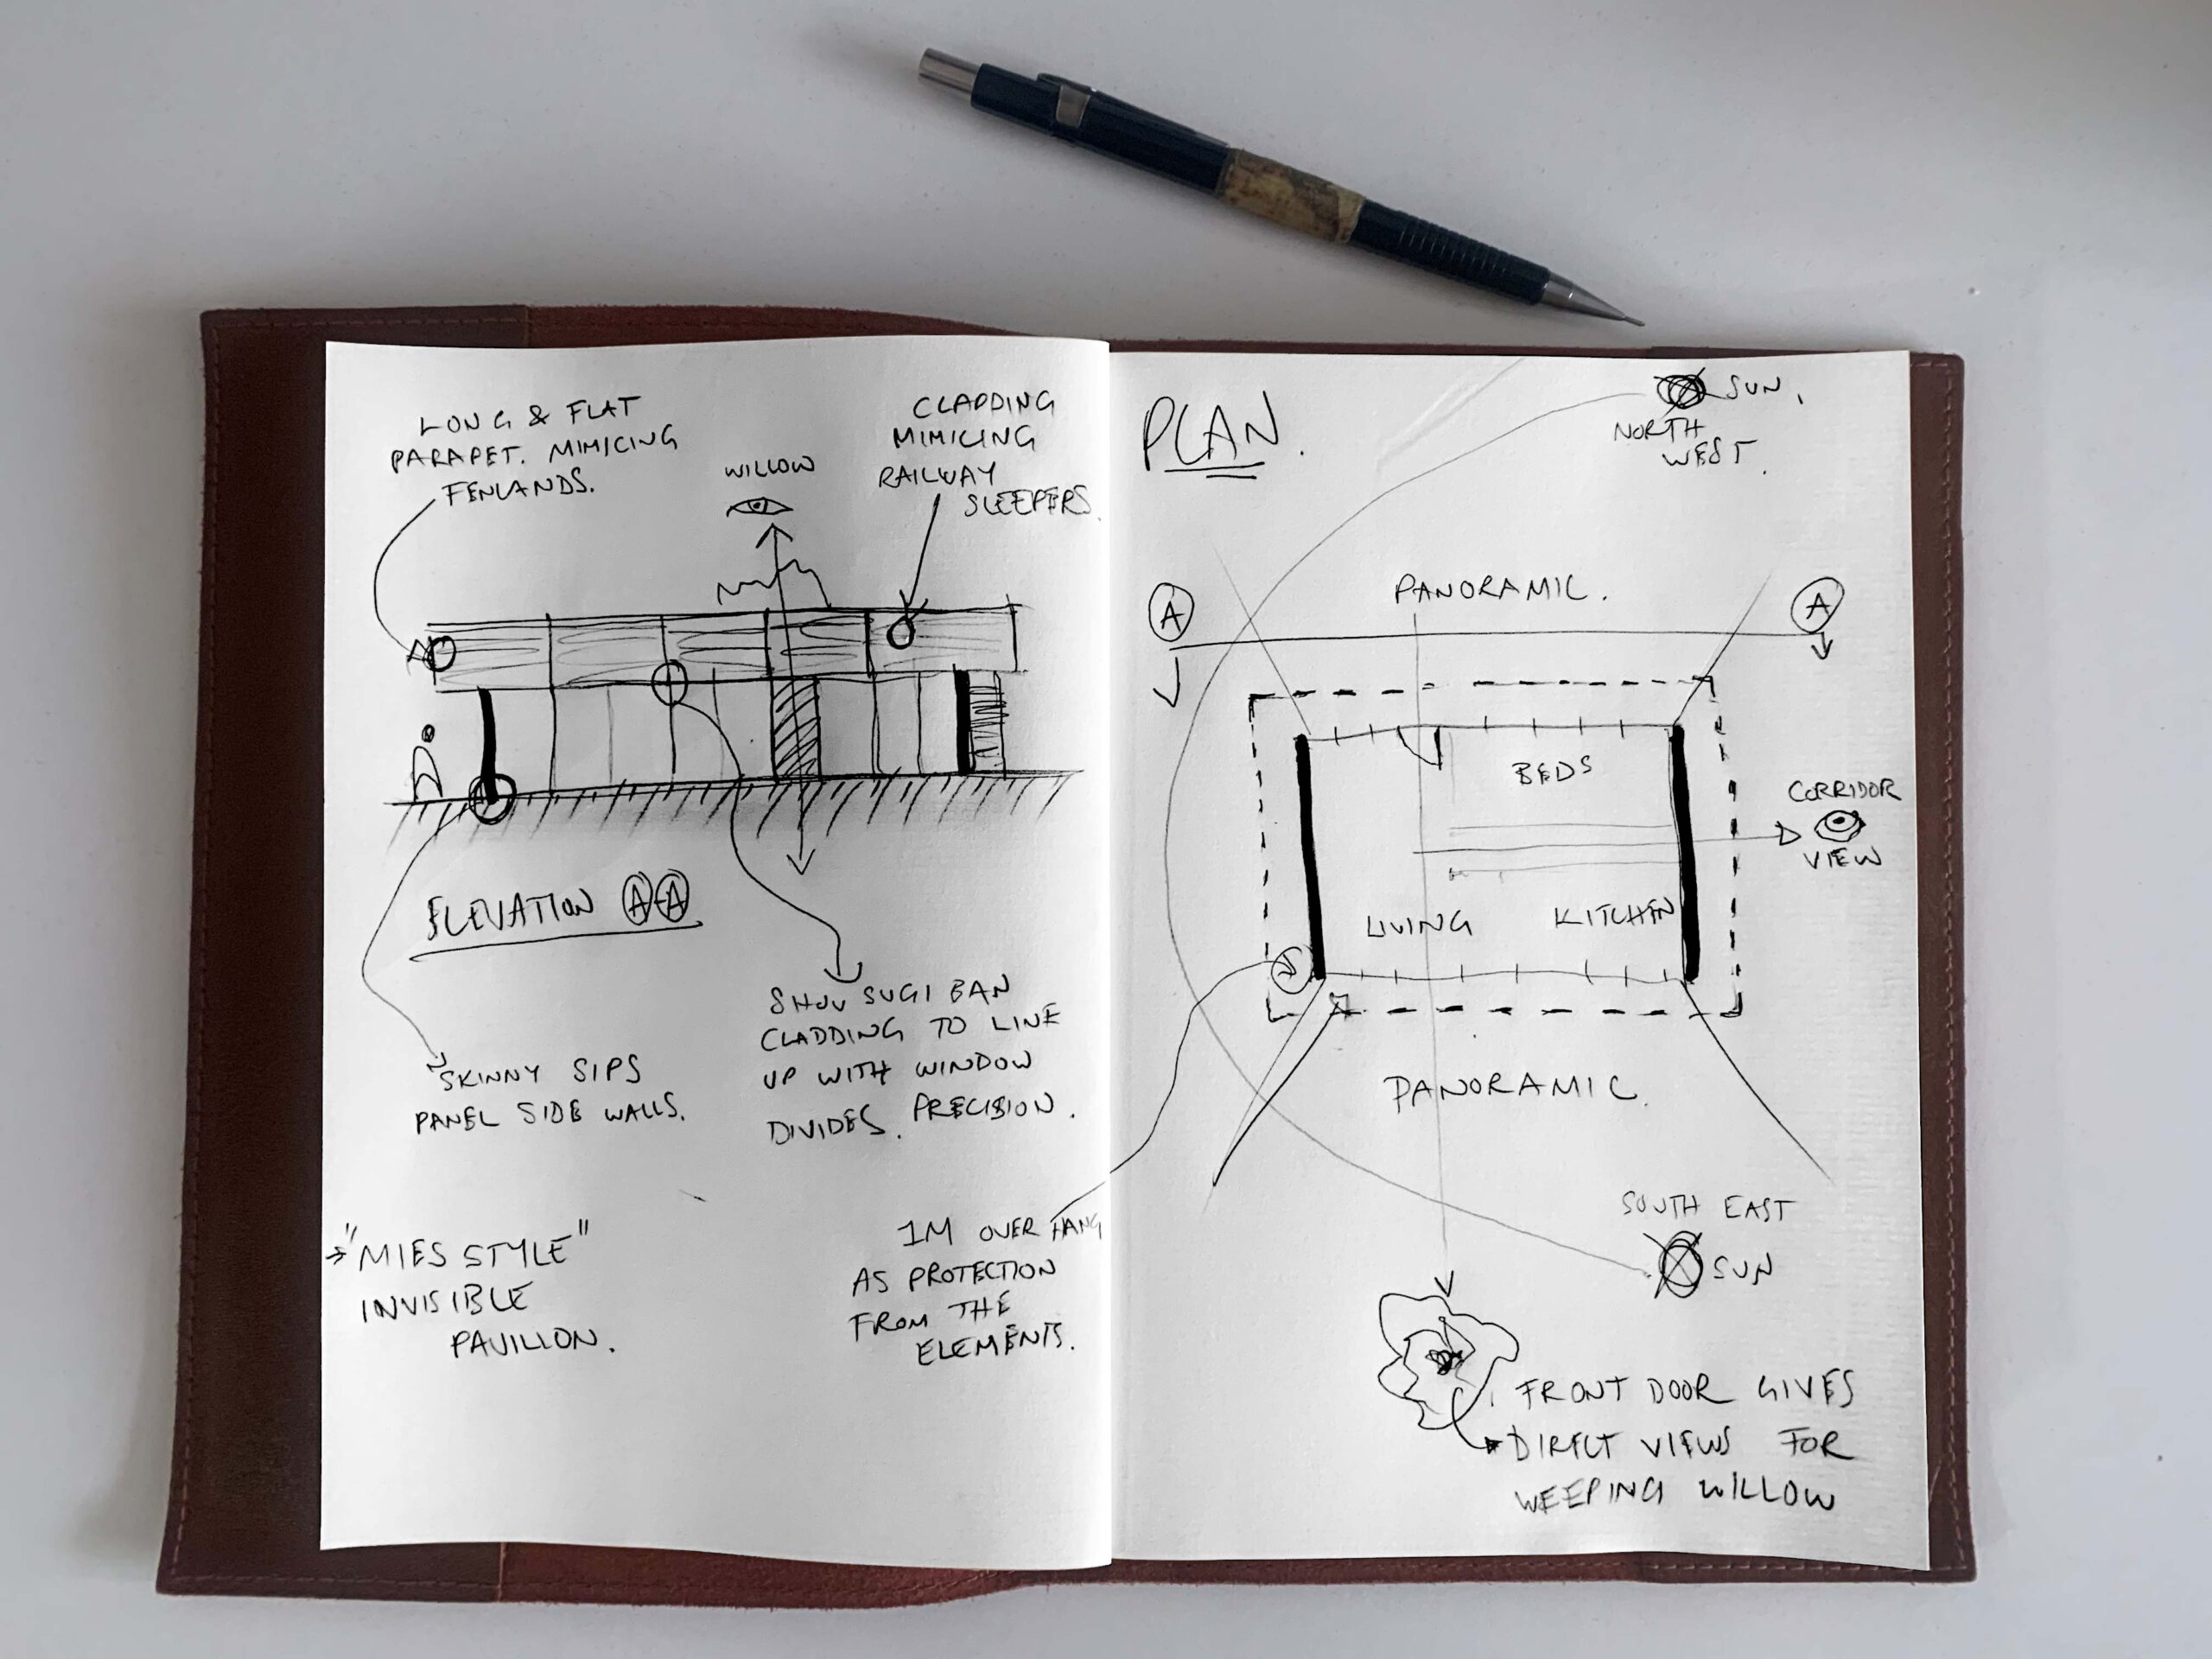 LONG & FLAT
PARAPET. MIMICING
FENLANDS.
WILLOW
CLADDING
MIMICING
RAILWAY
SLEEPERS.
ELEVATION A-A
SKINNY SIPS
PANEL SIDE WALLS.
SHOU SUGI BAN
CLADDING TO LINE
UP WITH WINDOW
DIVIDES. PRECISION.
"MIES STYLE"
INVISIBLE
PAVILLON.
1M OVER HANG
AS PROTECTION
FROM THE
ELEMENTS.
PLAN.
SUN.
NORTH
WEST.
A
PANORAMIC.
A
BEDS
CORRIDOR
VIEW
LIVING
KITCHEN
PANORAMIC.
SOUTH EAST
SUN
FRONT DOOR GIVES
DIRECT VIEWS FOR
WEEPING WILLOW